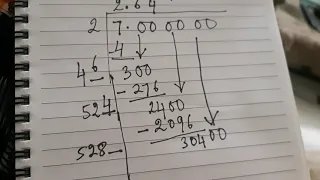 2.64
2 7.00 00 00
4
46 300
- 276
524 2400
- 2096
528- 30400